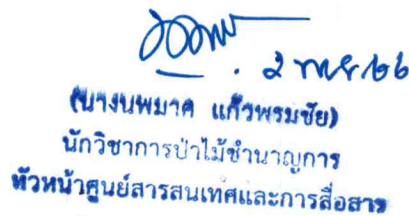 2 พ.ย. 66
(นางนพมาศ แก้วพรมชัย)
นักวิชาการป่าไม้ชำนาญการ
หัวหน้าศูนย์สารสนเทศและการสื่อสาร